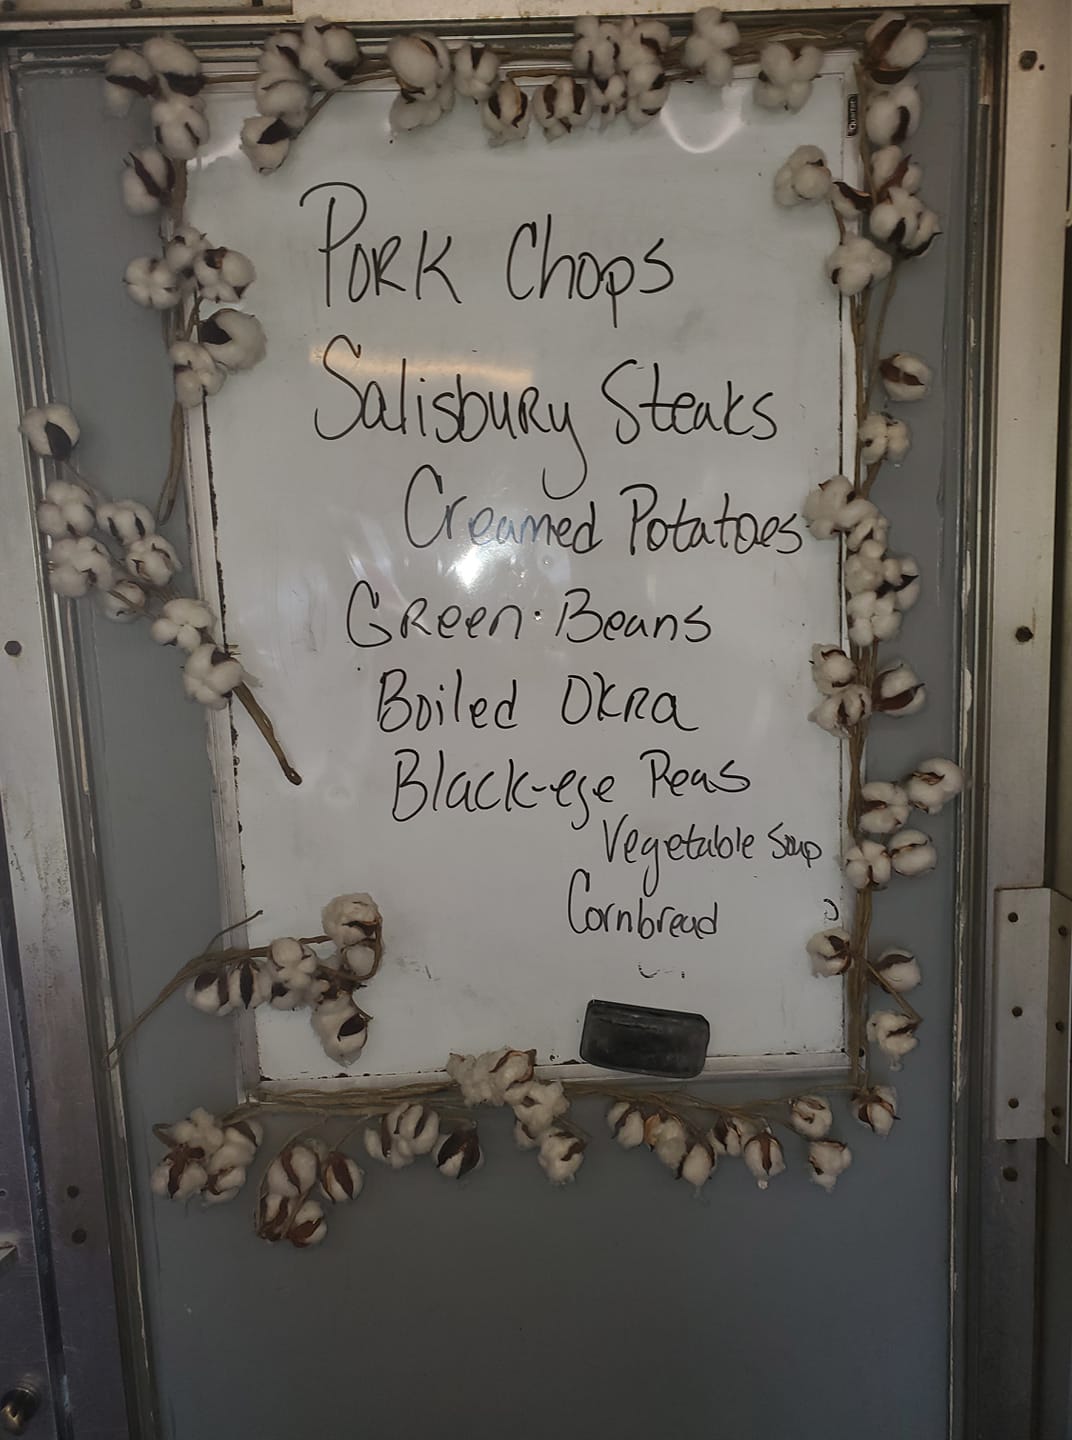 Pork Chops
Salisbury Steaks
Creamed Potatoes
Green Beans
Boiled Okra
Black-eye Peas
Vegetable Soup
Cornbread
QUARTET